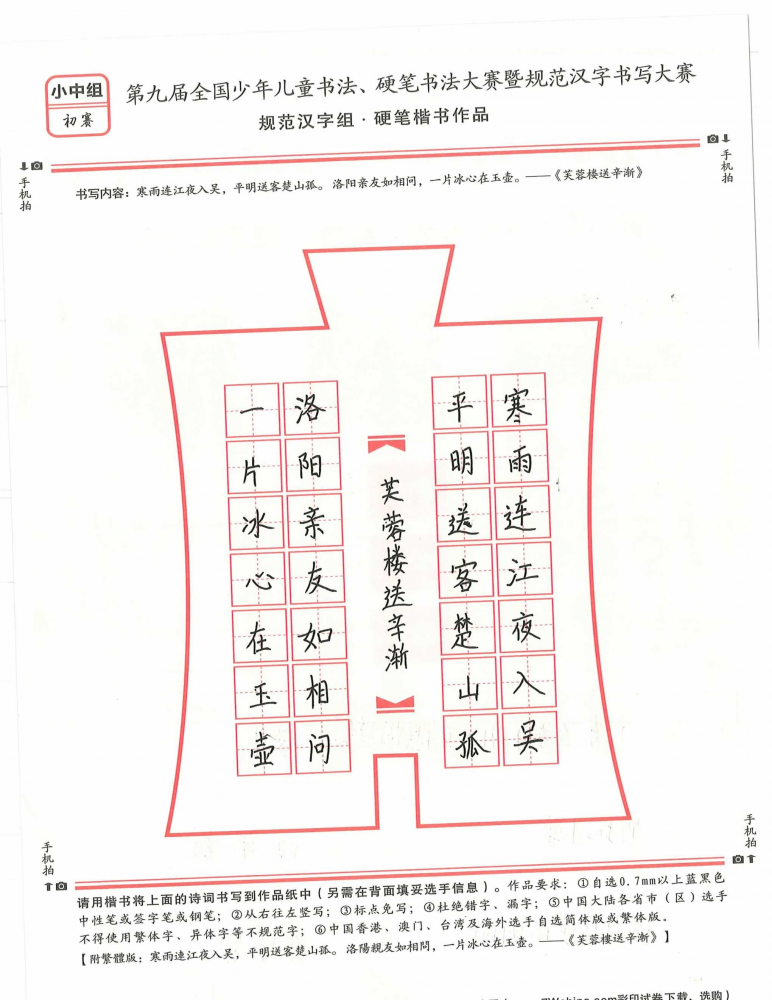 小中组
初赛
第九届全国少年儿童书法、硬笔书法大赛暨规范汉字书写大赛
规范汉字组·硬笔楷书作品
手机拍
手机拍
书写内容：寒雨连江夜入吴，平明送客楚山孤。洛阳亲友如相问，一片冰心在玉壶。——《芙蓉楼送辛渐》
寒雨连江夜入吴
平明送客楚山孤
芙蓉楼送辛渐
洛阳亲友如相问
一片冰心在玉壶
手机拍
手机拍
请用楷书将上面的诗词书写到作品纸中（另需在背面填妥选手信息）。作品要求：①自选0.7mm以上蓝黑色
中性笔或签字笔或钢笔；②从右往左竖写；③标点免写；④杜绝错字、漏字；⑤中国大陆各省市（区）选手
不得使用繁体字、异体字等不规范字；⑥中国香港、澳门、台湾及海外选手自选简体版或繁体版。
【附繁體版：寒雨連江夜入吴，平明送客楚山孤。洛陽親友如相問，一片冰心在玉壶。——《芙蓉楼送辛渐》】
.com彩印试卷下载、选购）